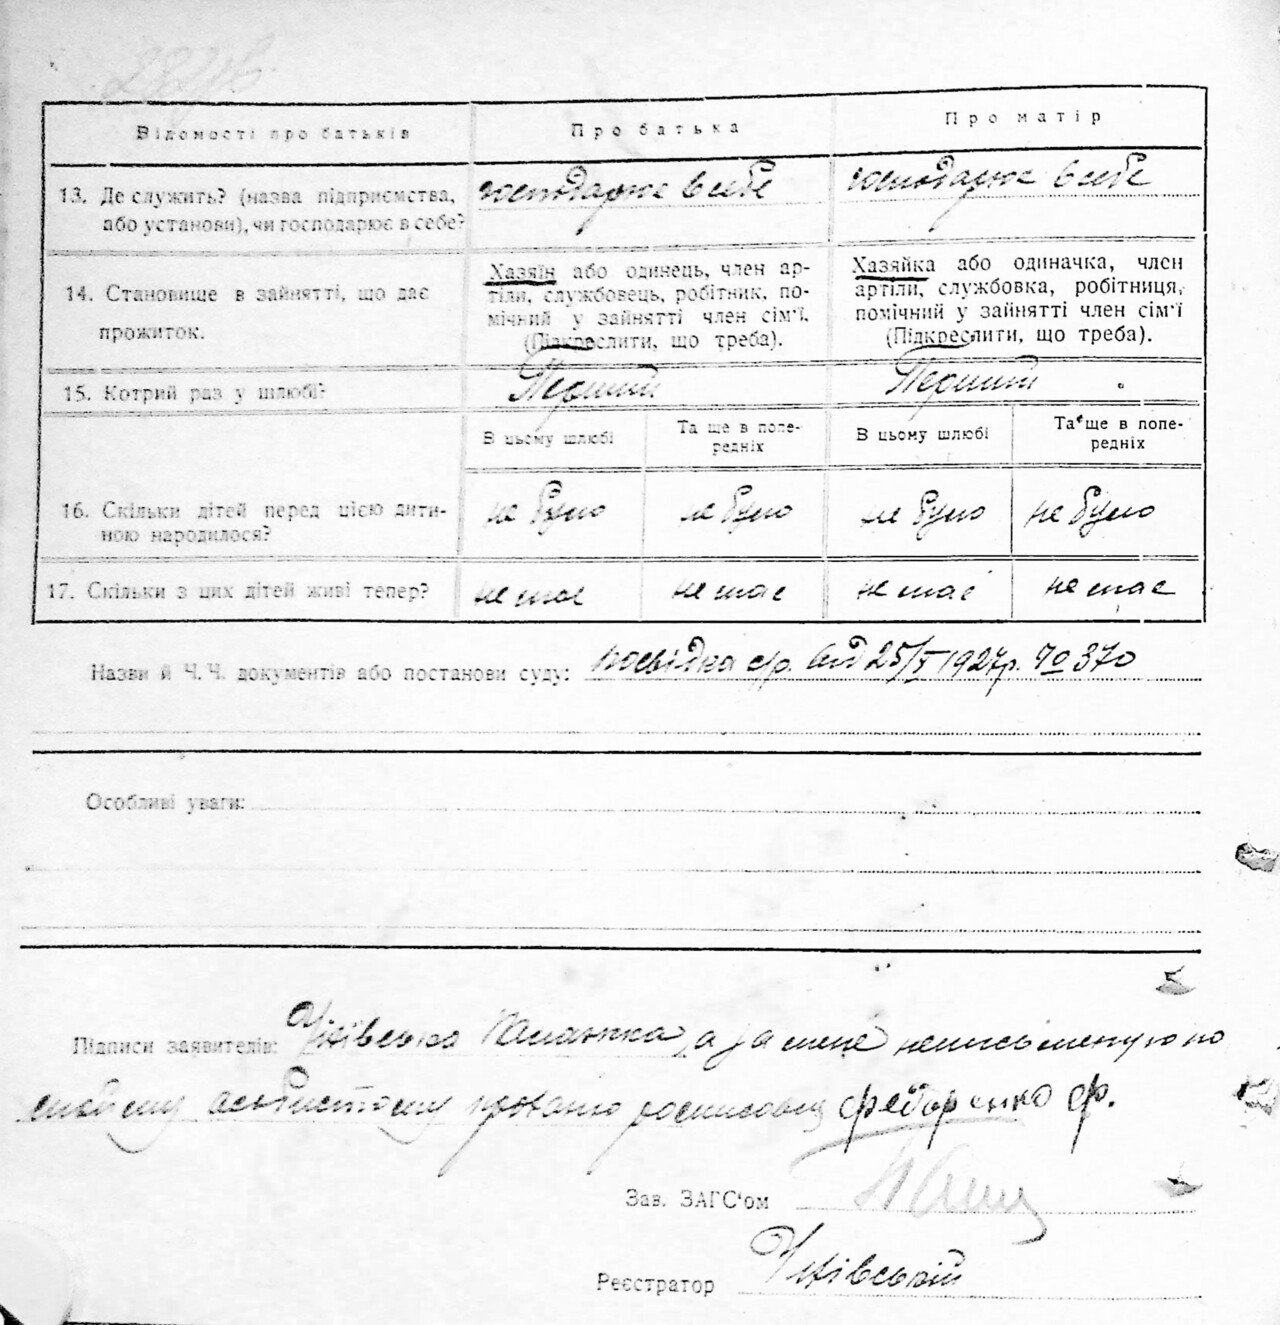 Відомості про батьків
Про батька
Про матір
13. Де служить? (назва підприємства,
або установи), чи господарює в себе?
господарює в себе
господарює в себе
14. Становище в зайнятті, що дає
прожиток.
Хазяїн або одинець, член ар-
тіли, службовець, робітник, по-
мічний у зайнятті член сім'ї.
(Підкреслити, що треба).
Хазяйка або одиначка, член
артіли, службовка, робітниця,
помічний у зайнятті член сім'ї
(Підкреслити, що треба).
15. Котрий раз у шлюбі?
Перший
Перший
В цьому шлюбі
Та ще в попе-
редніх
В цьому шлюбі
Та ще в попе-
редніх
16. Скільки дітей перед цією дити-
ною народилося?
не було
не було
не було
не було
17. Скільки з цих дітей живі тепер?
не має
не має
не має
не має
Назви й Ч.Ч. документів або постанови суду: посвідка с/р. від 25/V 1927р. № 370
Особливі уваги:
Підписи заявителів: а за мене неписьменную по
моєму особистому проханю росписавсь Федоренко Ф.
Зав. ЗАГС'ом
Реєстратор